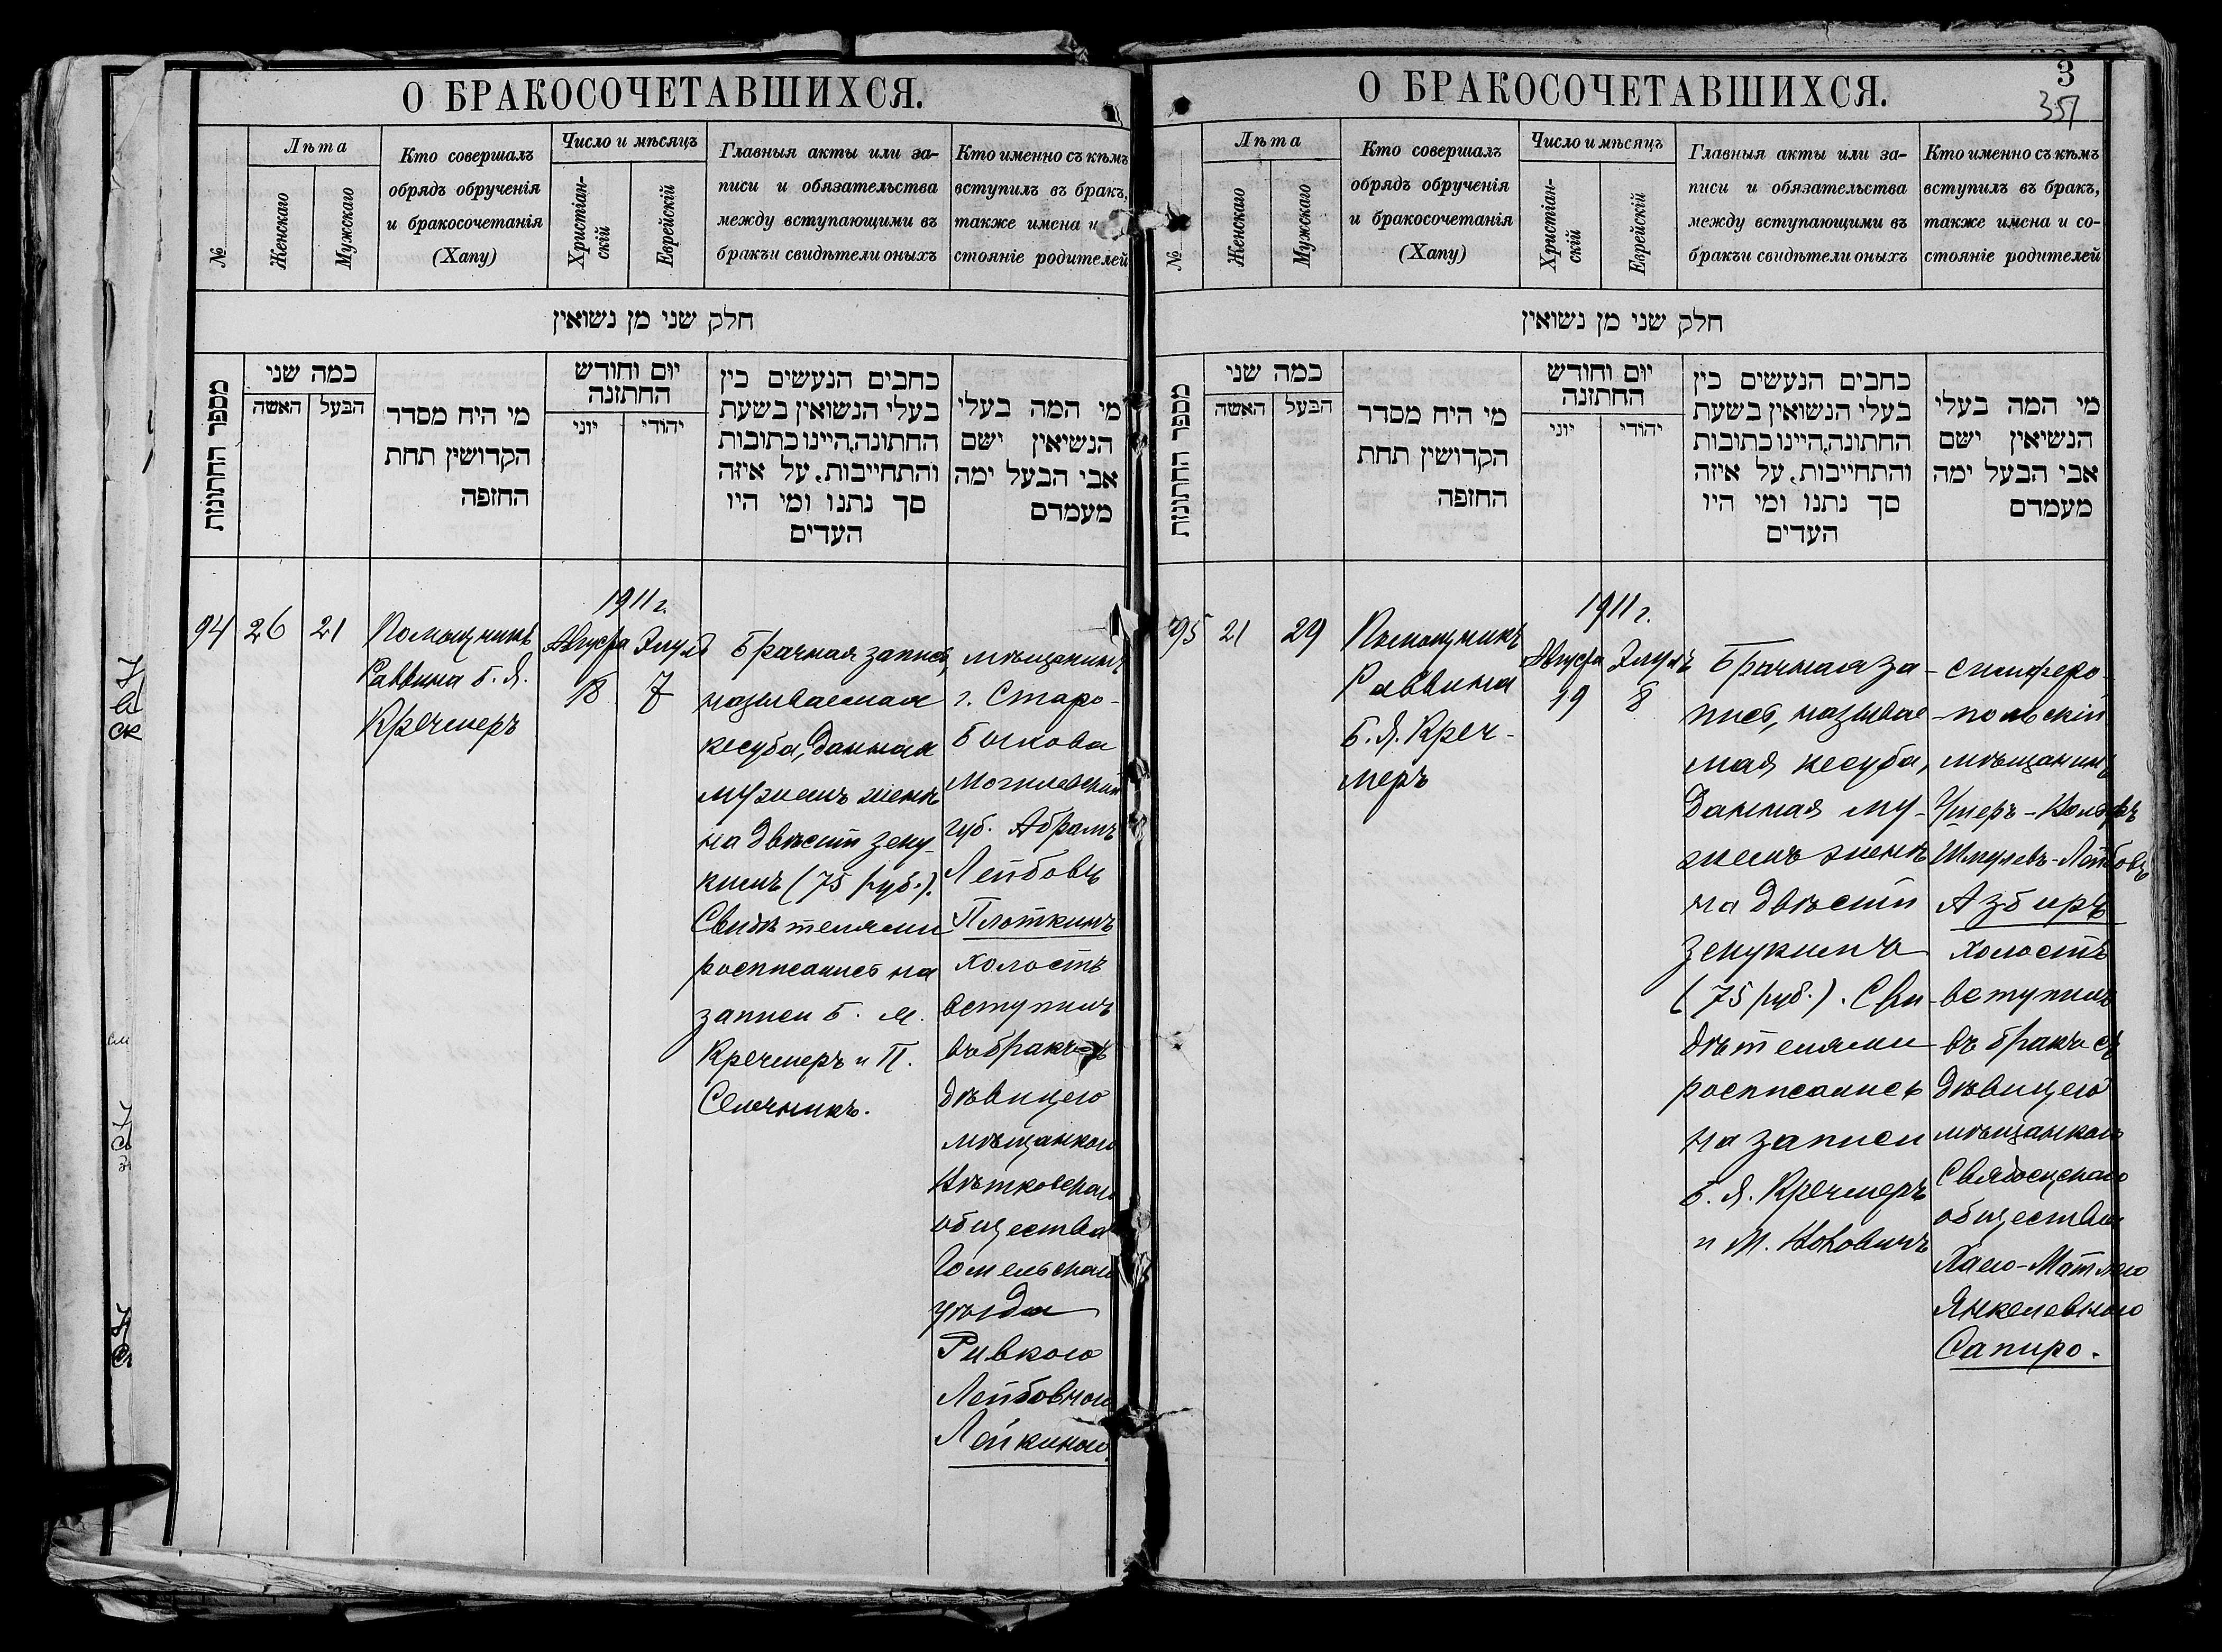 О БРАКОСОЧЕТАВШИХСЯ.
№
Лѣта
Женскаго
Мужскаго
Кто совершалъ
обрядъ обрученія
и бракосочетанія
(Хапу)
Число и мѣсяцъ
Христіан-
скій
Еврейскій
Главныя акты или за-
писи и обязательства
между вступающими въ
бракъи свидѣтели оныхъ
Кто именно съ кѣмъ
вступилъ въ бракъ,
также имена и
стояніе родителей
חלק שני מן נשואין
מספר החתונות
כמה שני
הבעל
האשה
מי היח מסדר
הקדושין תחת
החזפה
יום וחודש
החתזנה
יהודי
יוני
כחבים הנעשים כין
בעלי הנשואין בשעת
החתונה,היינו כתובות
והתחייבות, על איזה
סך נתנו ומי היו
העדים
מי המה בעלי
הנשיאין ישם
אבי הבעל ימה
מעמדם
94
26
21
Помощникъ
Раввина Б. Я.
Кречмеръ
1911 г.
Августа
18
Элулъ
7
Брачная запись,
называемая
кесуба, данная
мужемъ женѣ
на двѣсти зему-
кимъ (75 руб.).
Свидѣтелями
росписались на
записи Б. Я.
Кречмеръ и П.
мѣщанинъ
г. Старо-
Быхова
Могилевской
губ. Абрамъ
Лейбовъ
Плоткинъ
холостъ
вступилъ
въ бракъ съ
дѣвицею
мѣщанкою
Вѣтковскаго
общества
Гомельскаго
уѣзда
Ривкою
Лейбовною
Лейкиною.
О БРАКОСОЧЕТАВШИХСЯ.
3
351
№
Лѣта
Женскаго
Мужскаго
Кто совершалъ
обрядъ обрученія
и бракосочетанія
(Хапу)
Число и мѣсяцъ
Христіан-
скій
Еврейскій
Главныя акты или за-
писи и обязательства
между вступающими въ
бракъи свидѣтели оныхъ
Кто именно съ кѣмъ
вступилъ въ бракъ,
также имена и со-
стояніе родителей
חלק שני מן נשואין
מספר החתונות
כמה שני
הבעל
האשה
מי היח מסדר
הקדושין תחת
החזפה
יום וחודש
החתזנה
יהודי
יוני
כחבים הנעשים כין
בעלי הנשואין בשעת
החתונה,היינו כתובות
והתחייבות, על איזה
סך נתנו ומי היו
העדים
מי המה בעלי
הנשיאין ישם
אבי הבעל ימה
מעמדם
95
21
29
Помощникъ
Раввина
Б. Я. Креч-
меръ
1911 г.
Августа
19
Элулъ
8
Брачная за-
пись, называе
мая кесуба,
данная му-
жемъ женѣ
на двѣсти
земукимъ
(75 руб.). Сви-
дѣтелями
росписались
на записи
Б. Я. Кречмеръ
и М.
симферо-
-польскій
мѣщанинъ
Шмулевъ-Лейбовъ
Азбиръ
холостъ
вступилъ
въ бракъ съ
дѣвицею
мѣщанкою
общества
Хаею-Матлею
Янкелевною
Сапиро.